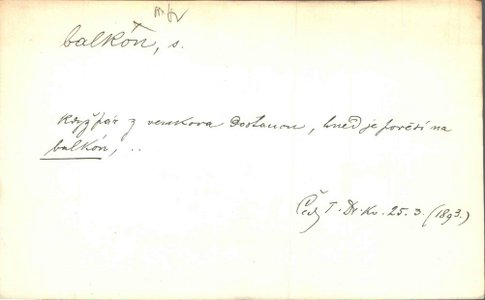 balkón, s.
Když pár z venkova dostanou, hned je pověsí na
balkón, ..
Čech T. Dr. Kv. 25. 3. (1893.)